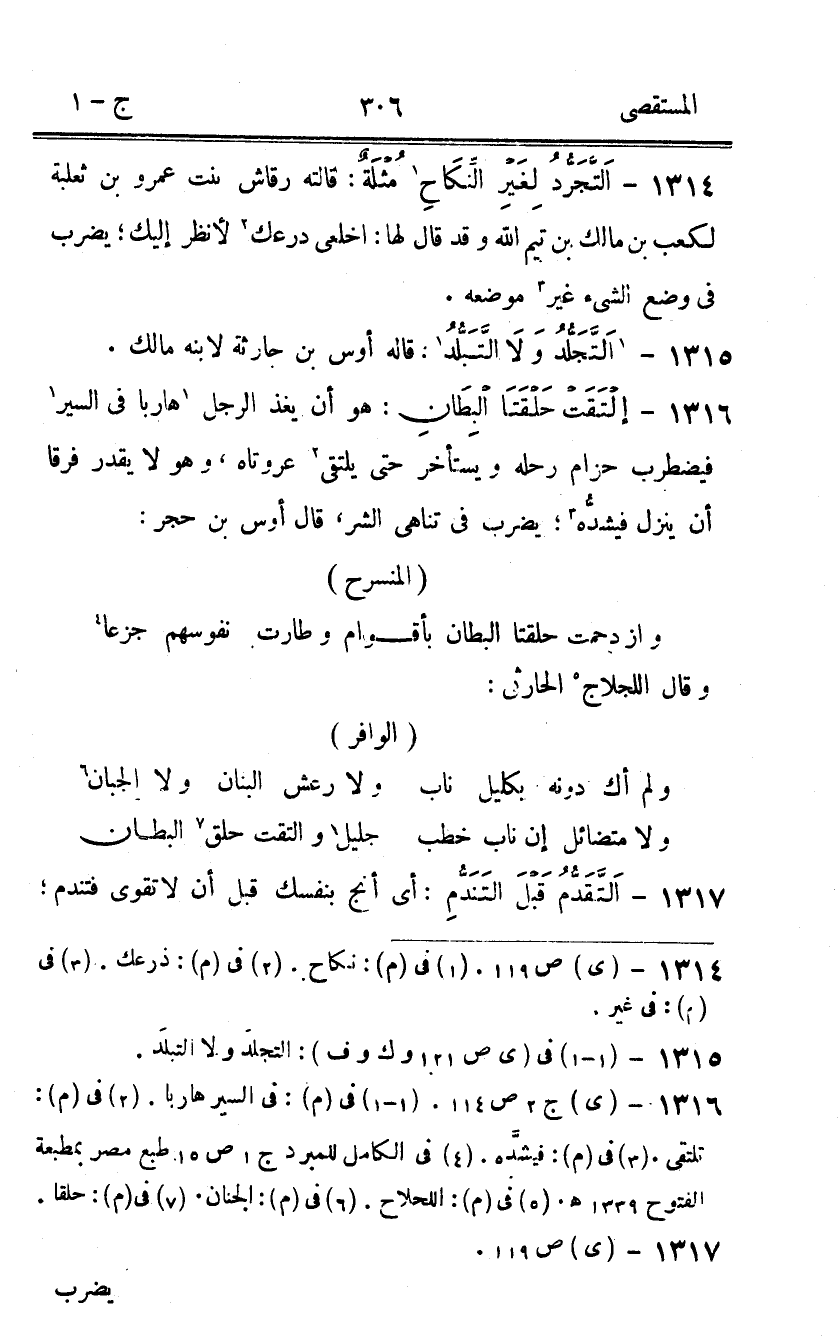 المستقصى ٣٠٦ ج - ١
١٣١٤ - اَلتَّجَرُّدُ لِغَيْرِ النِّكَاحِ١ مُثْلَةٌ : قالته رقاش بنت عمرو بن ثعلبة
لكعب بن مالك بن تيم الله و قد قال لها : اخلعى درعك٢ لأنظر إليك ؛ يضرب
فى وضع الشىء غير٣ موضعه .
١٣١٥ - ١اَلتَّجَلُّدُ وَ لَا التَّبَلُّدُ١ : قاله أوس بن حارثة لابنه مالك .
١٣١٦ - إِلْتَقَتْ حَلْقَتَا الْبِطَانِ : هو أن يغذ الرجل ١هاربا فى السير١
فيضطرب حزام رحله و يستأخر حتى يلتقى٢ عروتاه ، و هو لا يقدر فرقا
أن ينزل فيشدُّه٣ ؛ يضرب فى تناهى الشر، قال أوس بن حجر :
( المنسرح )
و ازدحمت حلقتا البطان بأقــوام و طارت نفوسهم جزعا٤
و قال اللجلاج٥ الحارثى :
( الوافر )
و لم أك دونه بكليل ناب و لا رعش البنان و لا الجبان٦
و لا متضائل إن ناب خطب جليل و التقت حلق٧ البطـان
١٣١٧ - اَلتَّقَدُّمُ قَبْلَ التَّنَدُّمِ : أى أنج بنفسك قبل أن لا تقوى فتندم ؛
١٣١٤ - ( ى ) ص ١١٩ . (١) فى (م) : نكاح . (٢) فى (م) : ذرعك . (٣) فى
(م) : فى غير .
١٣١٥ - (١-١) فى ( ى ص ١٢١ و ك و ف ) : التجلدَ و لا التبلدَ .
١٣١٦ - ( ى ) ج ٢ ص ١١٤ . (١-١) فى (م) : فى السير هاربا . (٢) فى (م) :
تلتقى . (٣) فى (م) : فيشدَّه . (٤) فى الكامل للمبرد ج ١ ص ١٥ طبع مصر بمطبعة
الفتوح ١٣٣٩ ه . (٥) فى (م) : اللحلاح . (٦) فى (م) : الجنان . (٧) فى (م) : حلقا .
١٣١٧ - ( ى ) ص ١١٩ .
يضرب